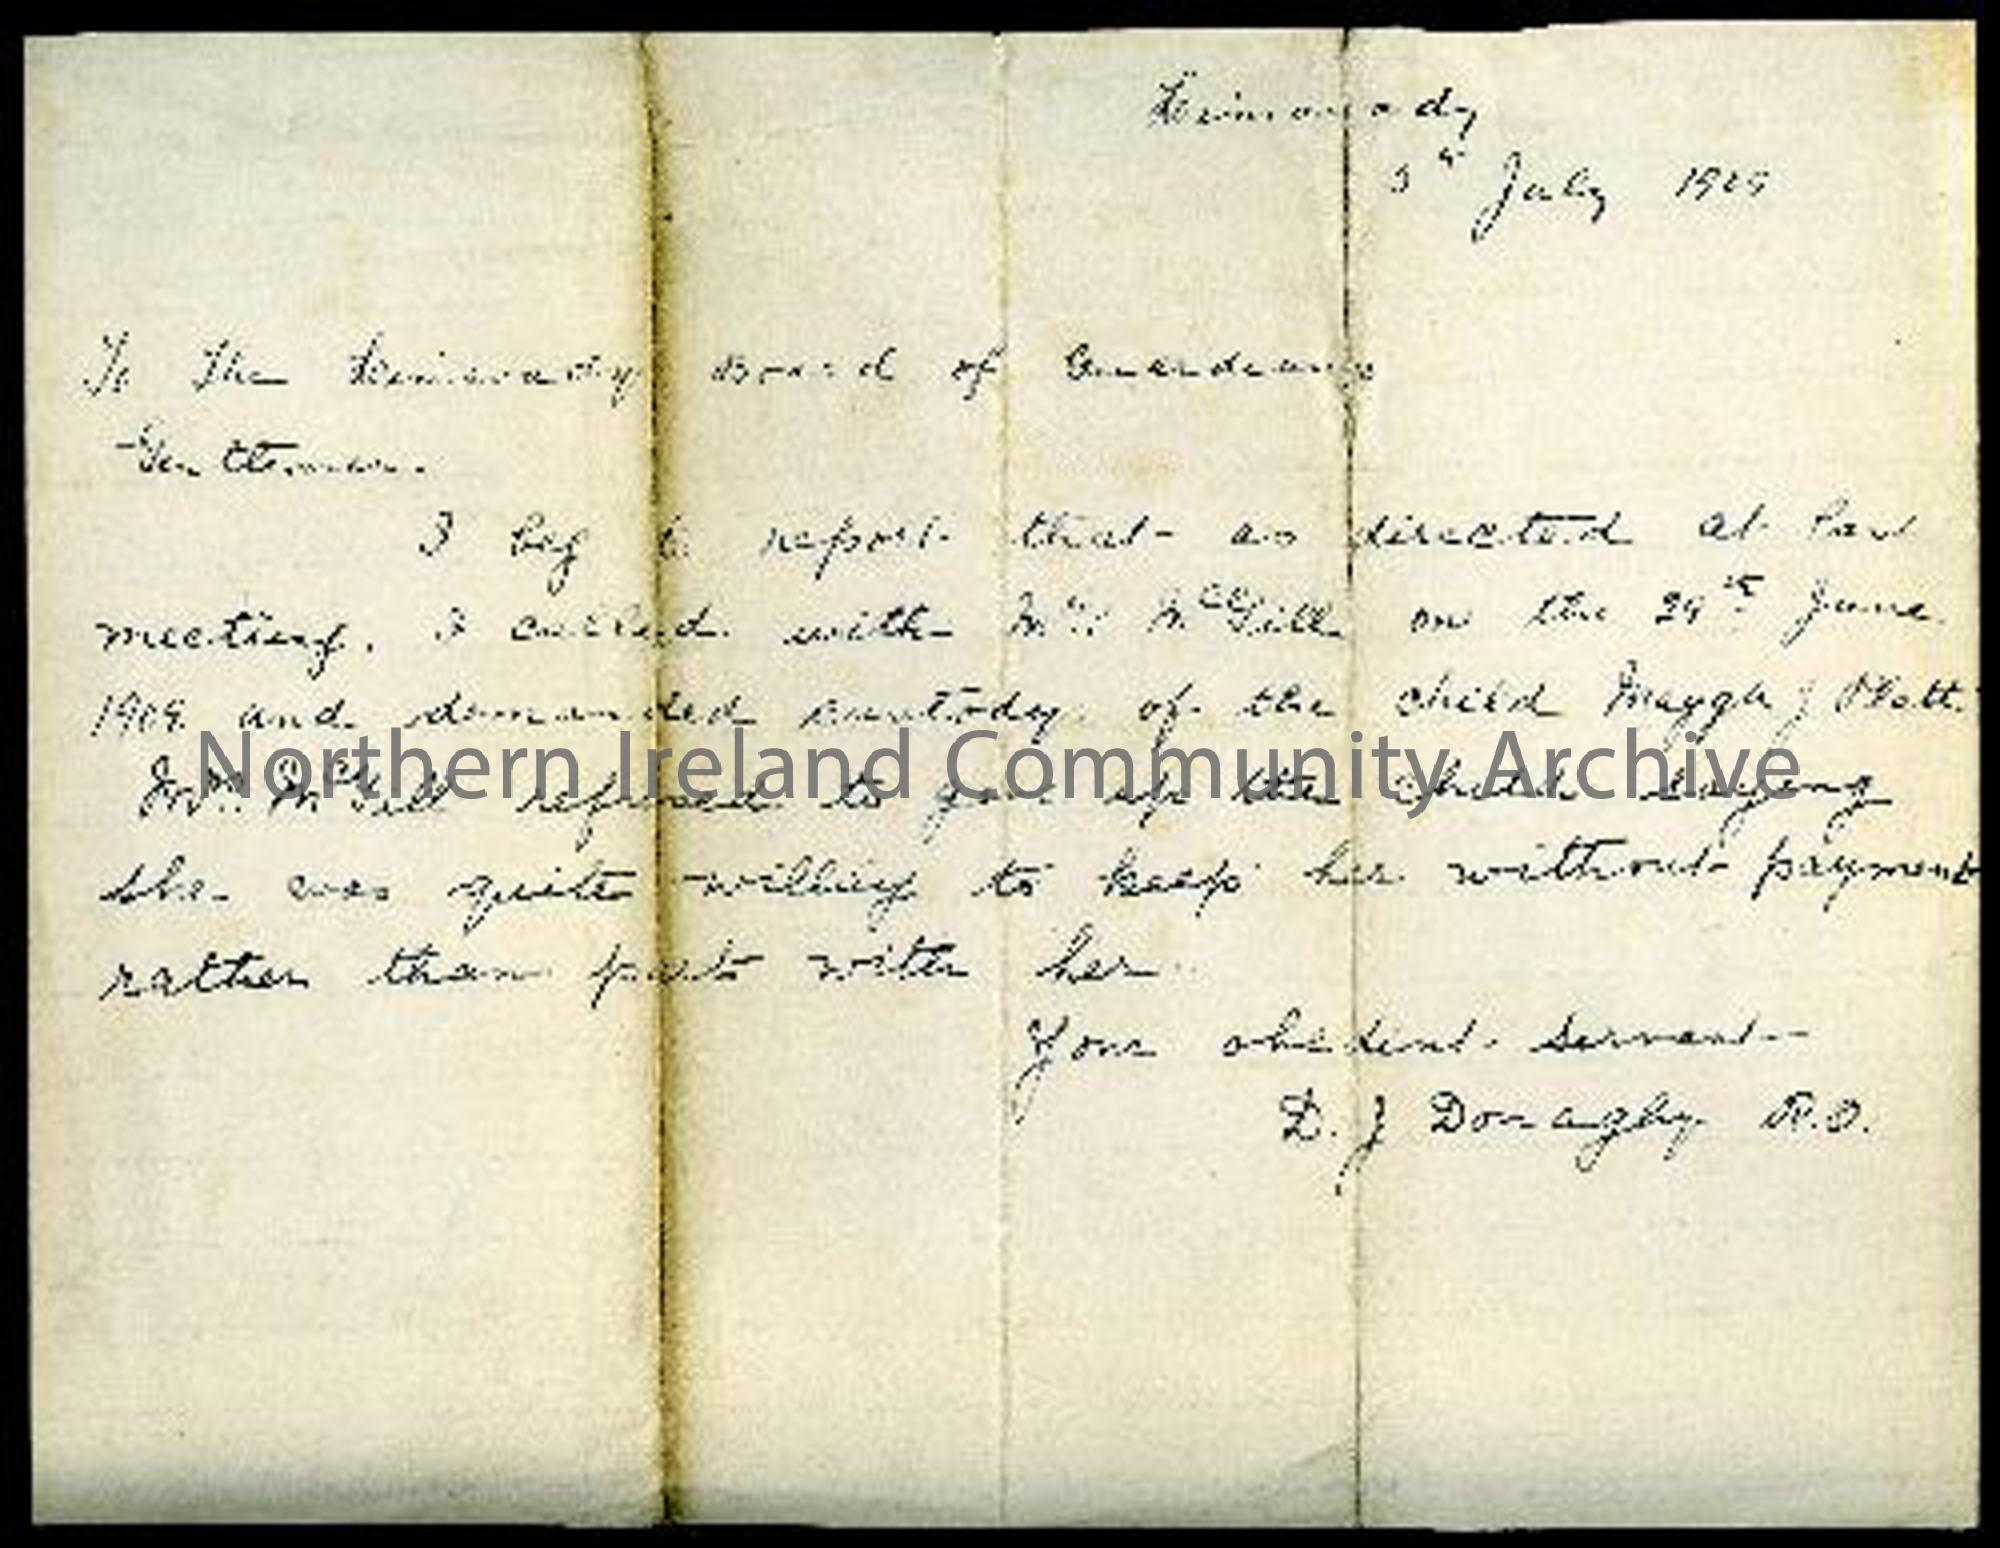 Limavady
5th July 1909
To The Limavady Board of Guardians
Gentlemen.
I beg to report that as directed at last
meeting. I called with Mrs McGill on the 29th June
1909 and demanded custody of the child Maggie J Platt.
Mrs McGill refused to give up the child saying
she was quite willing to keep her without payment
rather than part with her.
Your obedient servant
D. J Donaghy R.O.
Northern Ireland Community Archive